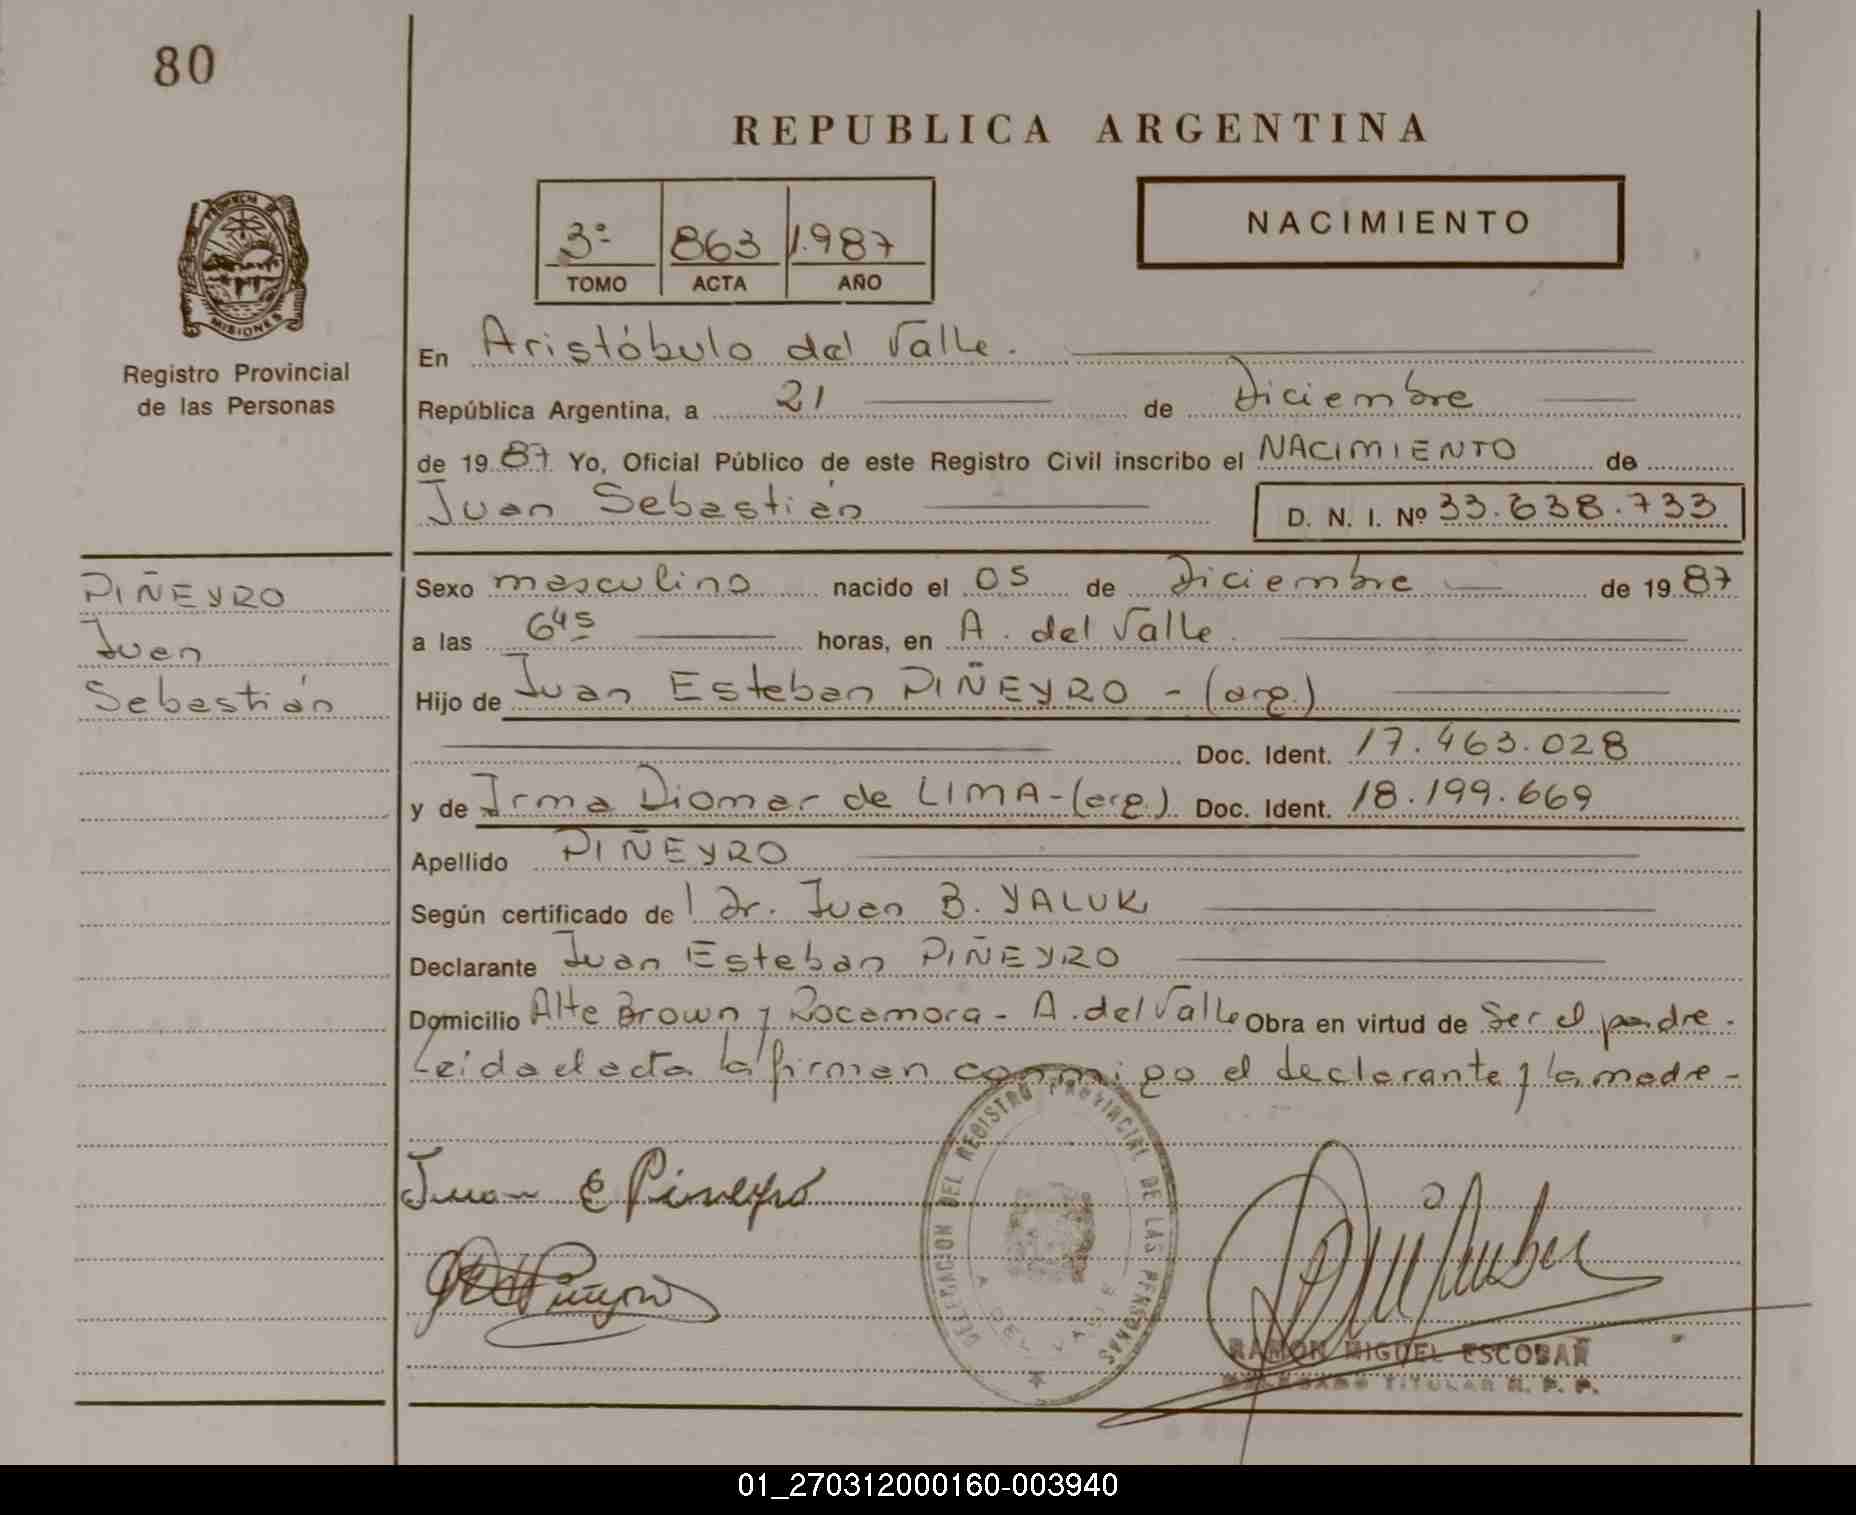 80
REPUBLICA ARGENTINA
3º 863 1.987
TOMO ACTA AÑO
NACIMIENTO
PROVINCIA DE
MISIONES
Registro Provincial
de las Personas
En Aristóbulo del Valle.
República Argentina, a 21 de Diciembre
de 1987 Yo, Oficial Público de este Registro Civil inscribo el NACIMIENTO de
Juan Sebastián D. N. I. Nº 33.638.733
PIÑEYRO
Juan
Sebastián
Sexo masculino nacido el 05 de Diciembre de 1987
a las 6 45 horas, en A. del Valle.
Hijo de Juan Esteban PIÑEYRO - (arg.)
Doc. Ident. 17.463.028
y de Irma Diomar de LIMA - (arg.) Doc. Ident. 18.199.669
Apellido PIÑEYRO
Según certificado de l Dr. Juan B. YALUK
Declarante Juan Esteban PIÑEYRO
Domicilio Alte Brown y Rocamora - A. del Valle Obra en virtud de Ser el padre.
Leida el acta la firman conmigo el declarante y la madre -
Juan E Piñeyro
DELEGACION DEL REGISTRO PROVINCIAL DE LAS PERSONAS
A. DEL VALLE
RAMON MIGUEL ESCOBAR
DELEGADO TITULAR R. P. P.
01_270312000160-003940